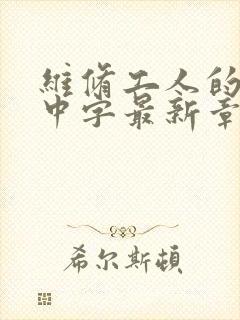 維脩工人的
中字最新章
希尔斯頓